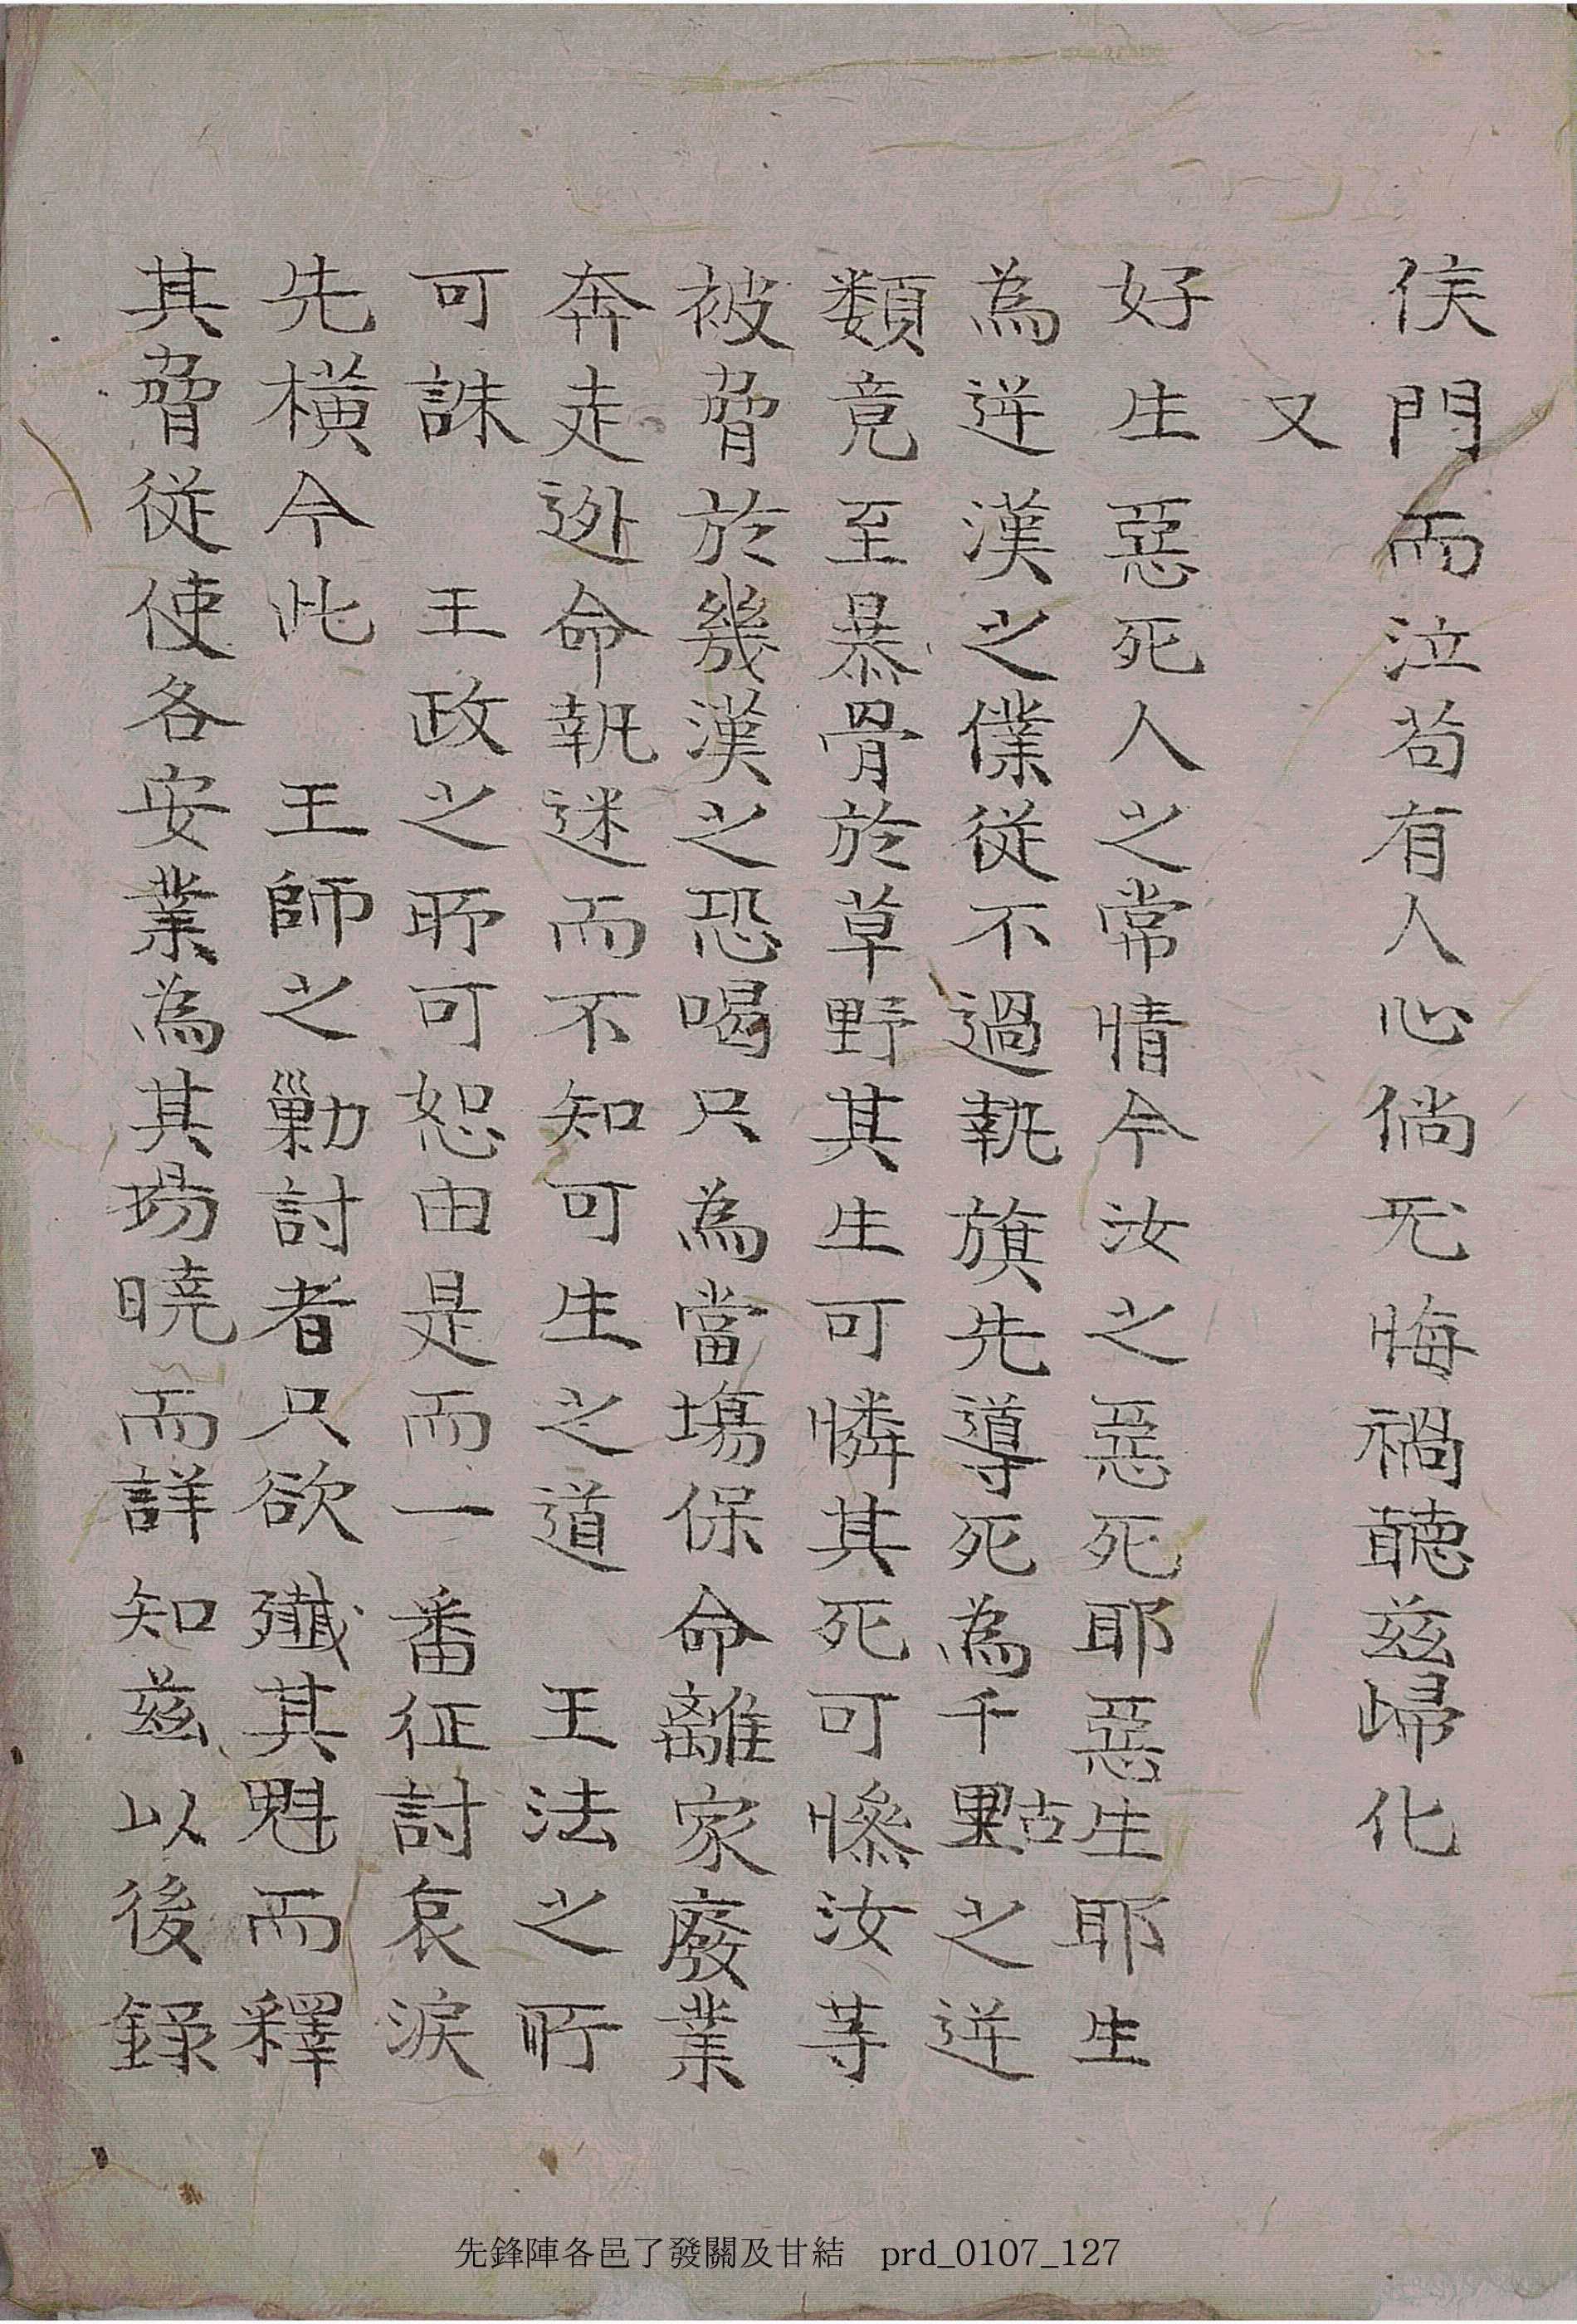 俟門而泣苟有人心倘旡悔禍聽玆歸化
又
好生惡死人之常情今汝之惡死耶惡生耶生
為逆漢之僕從不過執旗先導死為千點之逆
類竟至暴骨於草野其生可憐其死可慘汝等
被脅於幾漢之恐喝只為當場保命離家廢業
奔走逊命執迷而不知可生之道 王法之所
可誅 王政之所可恕由是而一番征討哀淚
先橫今此 王師之勦討者只欲殲其魁而釋
其脅從使各安業為其場曉而詳知玆以後錄
先鋒陣各邑了發關及甘結 prd_0107_127